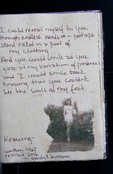 I could reveal myself to you
through endless words or perhaps
stand naked in a pool of
my clothing
And you would smile at you
look at my variation of
and I would smile back
Knowing that you couldn't
see the souls of my feet.
Knowing
written 1967
revised 2016